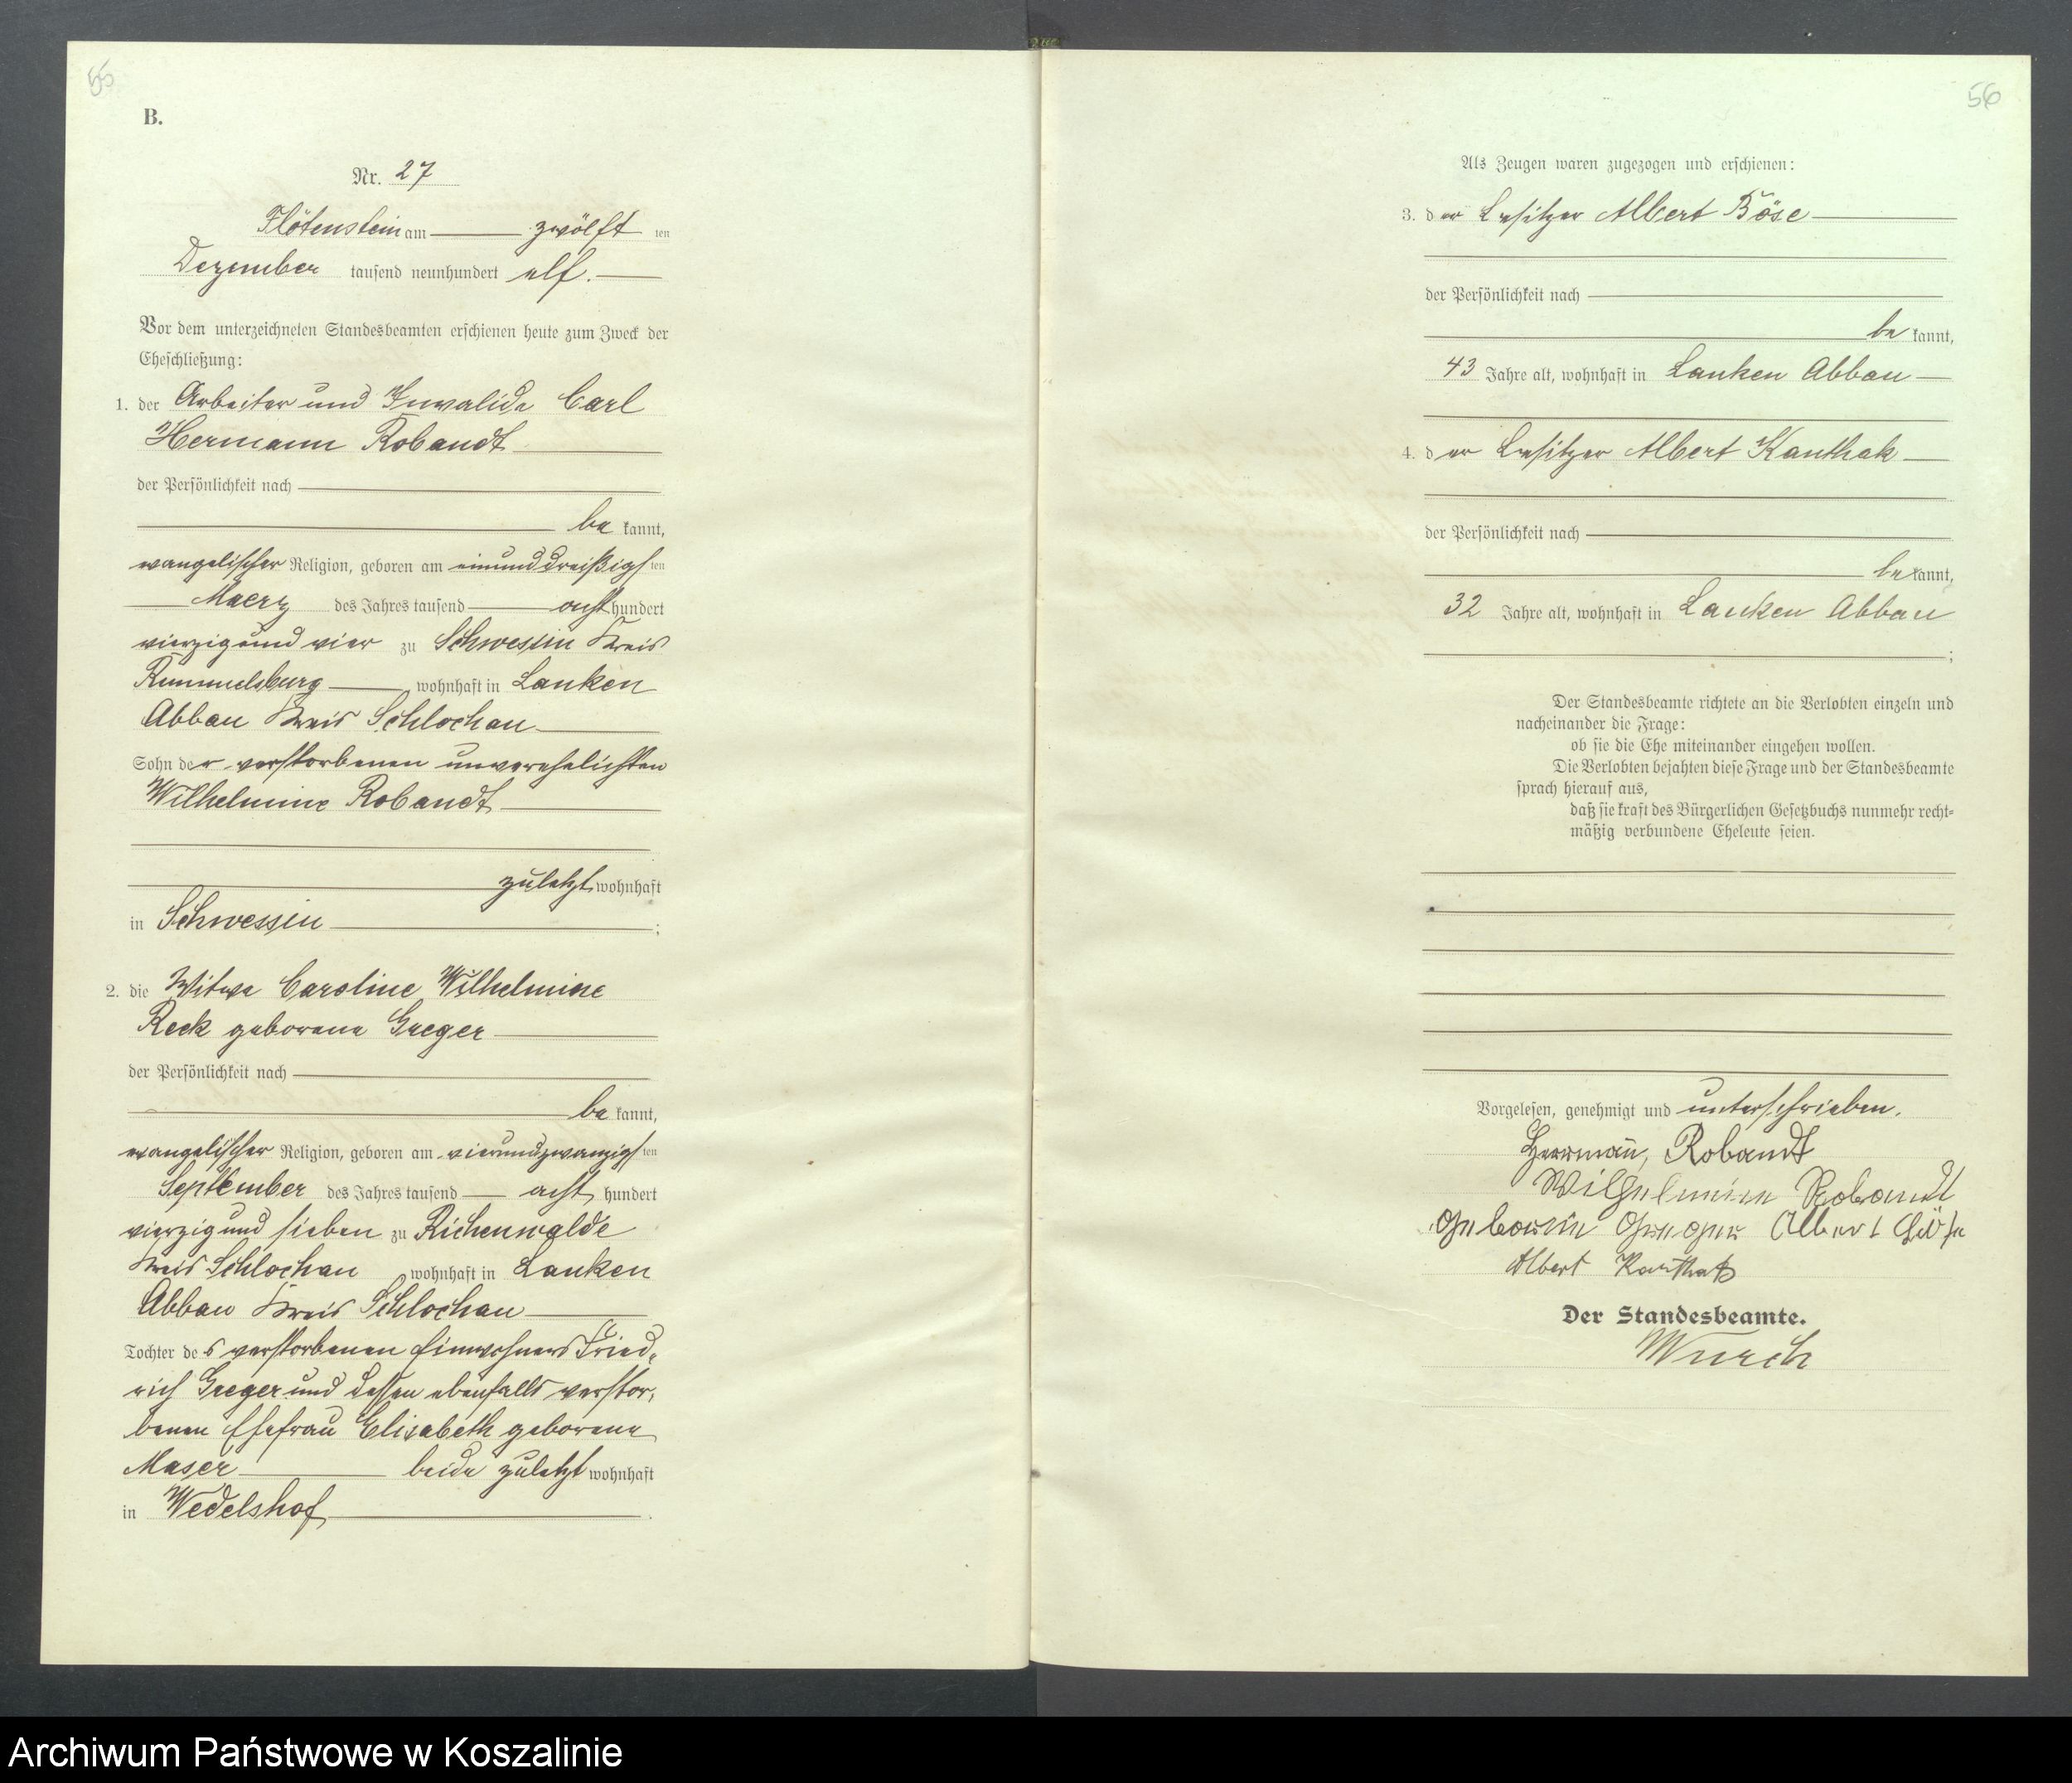 55
B.
Nr. 27
Flötenstein am zwölft ten
Dezember tausend neunhundert elf.
Vor dem unterzeichneten Standesbeamten erschienen heute zum Zweck der
Eheschließung:
1. der Arbeiter und Invalide Carl
Hermann Robandt
der Persönlichkeit nach
be kannt,
evangelischer Religion, geboren am einunddreißigs ten
Maerz des Jahres tausend acht hundert
vierzig und vier zu Schwessin Kreis
Rummelsburg, wohnhaft in Lanken
Abbau Kreis Schlochau
Sohn der verstorbenen unverehelichten
Wilhelmine Robandt
zuletzt wohnhaft
in Schwessin ;
2. die Witwe Caroline Wilhelmine
Reck geborene Greger
der Persönlichkeit nach
be kannt,
evangelischer Religion, geboren am vierundzwanzigs ten
September des Jahres tausend acht hundert
vierzig und sieben zu Richenwalde
Kreis Schlochau, wohnhaft in Lanken
Abbau Kreis Schlochau
Tochter des verstorbenen Einwohners Fried-
rich Greger und dessen ebenfalls verstor-
benen Ehefrau Elisabeth geborene
Maser beide zuletzt wohnhaft
in Wedelshof .
56
Als Zeugen waren zugezogen und erschienen:
3. der Besitzer Albert Böse
der Persönlichkeit nach
be kannt,
43 Jahre alt, wohnhaft in Lanken Abbau
4. der Besitzer Albert Kanthak
der Persönlichkeit nach
be kannt,
32 Jahre alt, wohnhaft in Lanken Abbau
;
Der Standesbeamte richtete an die Verlobten einzeln und
nacheinander die Frage:
ob sie die Ehe miteinander eingehen wollen.
Die Verlobten bejahten diese Frage und der Standesbeamte
sprach hierauf aus,
daß sie kraft des Bürgerlichen Gesetzbuchs nunmehr recht-
mäßig verbundene Eheleute seien.
Vorgelesen, genehmigt und unterschrieben.
Herrmann, Robandt
Wilhelmine Robandt
geborene Greger Albert Böse
Albert Kanthak
Der Standesbeamte.
Wurch
Archiwum Państwowe w Koszalinie